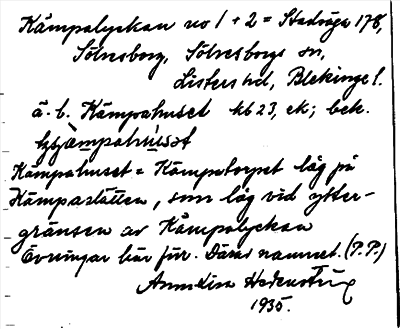 Kämpalyckan no 1 + 2 = Stadsäga 178,
Sölvesborg, Sölvesborgs sn,
Listers hd, Blekinge l.
ä. b. Kämpahuset kb 23, ek; bek.
Kämpahuset = Kämpatorpet låg på
Kämpaslätten, som låg vid ytter-
gränsen av Kämpalyckan
här för. Därav namnet. (P.P.)
Annalisa
1935.